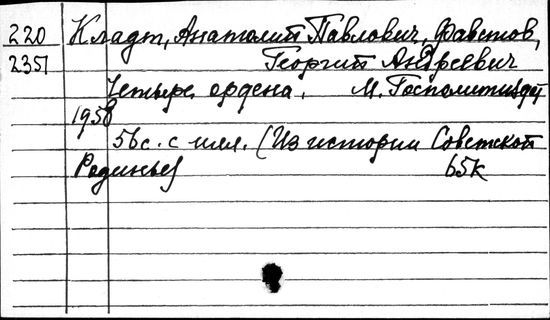 220 Кладт, Анатолий Павлович, Фавстов,
2351 Георгий Андреевич
Четыре ордена. М. Госполитиздат
1958
56с. с илл. (Из истории Советской
Родины) 65к